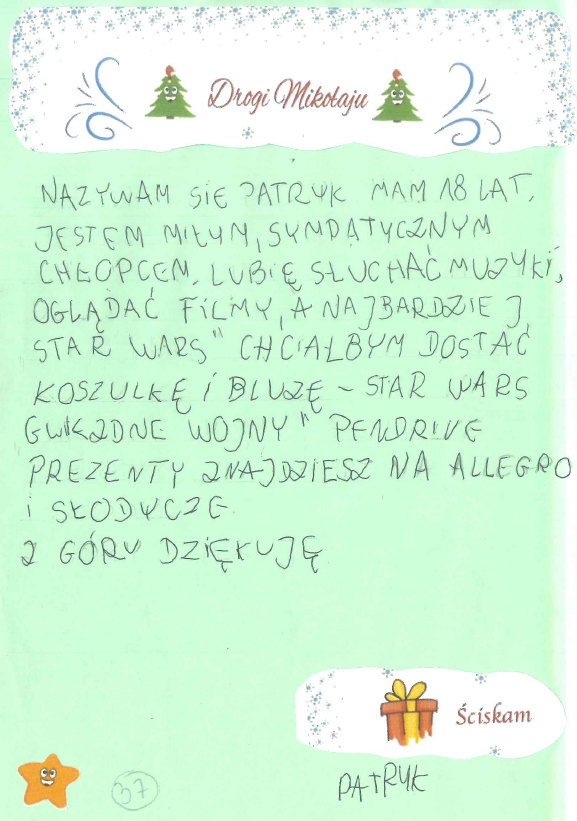 Drogi Mikołaju
NAZYWAM SIĘ PATRYK MAM 18 LAT.
JESTEM MIŁYM, SYMPATYCZNYM
CHŁOPCEM. LUBIĘ SŁUCHAĆ MUZYKI,
OGLĄDAĆ FILMY, A NAJBARDZIEJ
STAR WARS" CHCIAŁBYM DOSTAĆ
KOSZULKĘ I BLUZĘ – STAR WARS
GWIEZDNE WOJNY" PENDRIVE
PREZENTY ZNAJDZIESZ NA ALLEGRO
i SŁODYCZE
Z GÓRY DZIĘKUJĘ
Ściskam
PATRYK
37